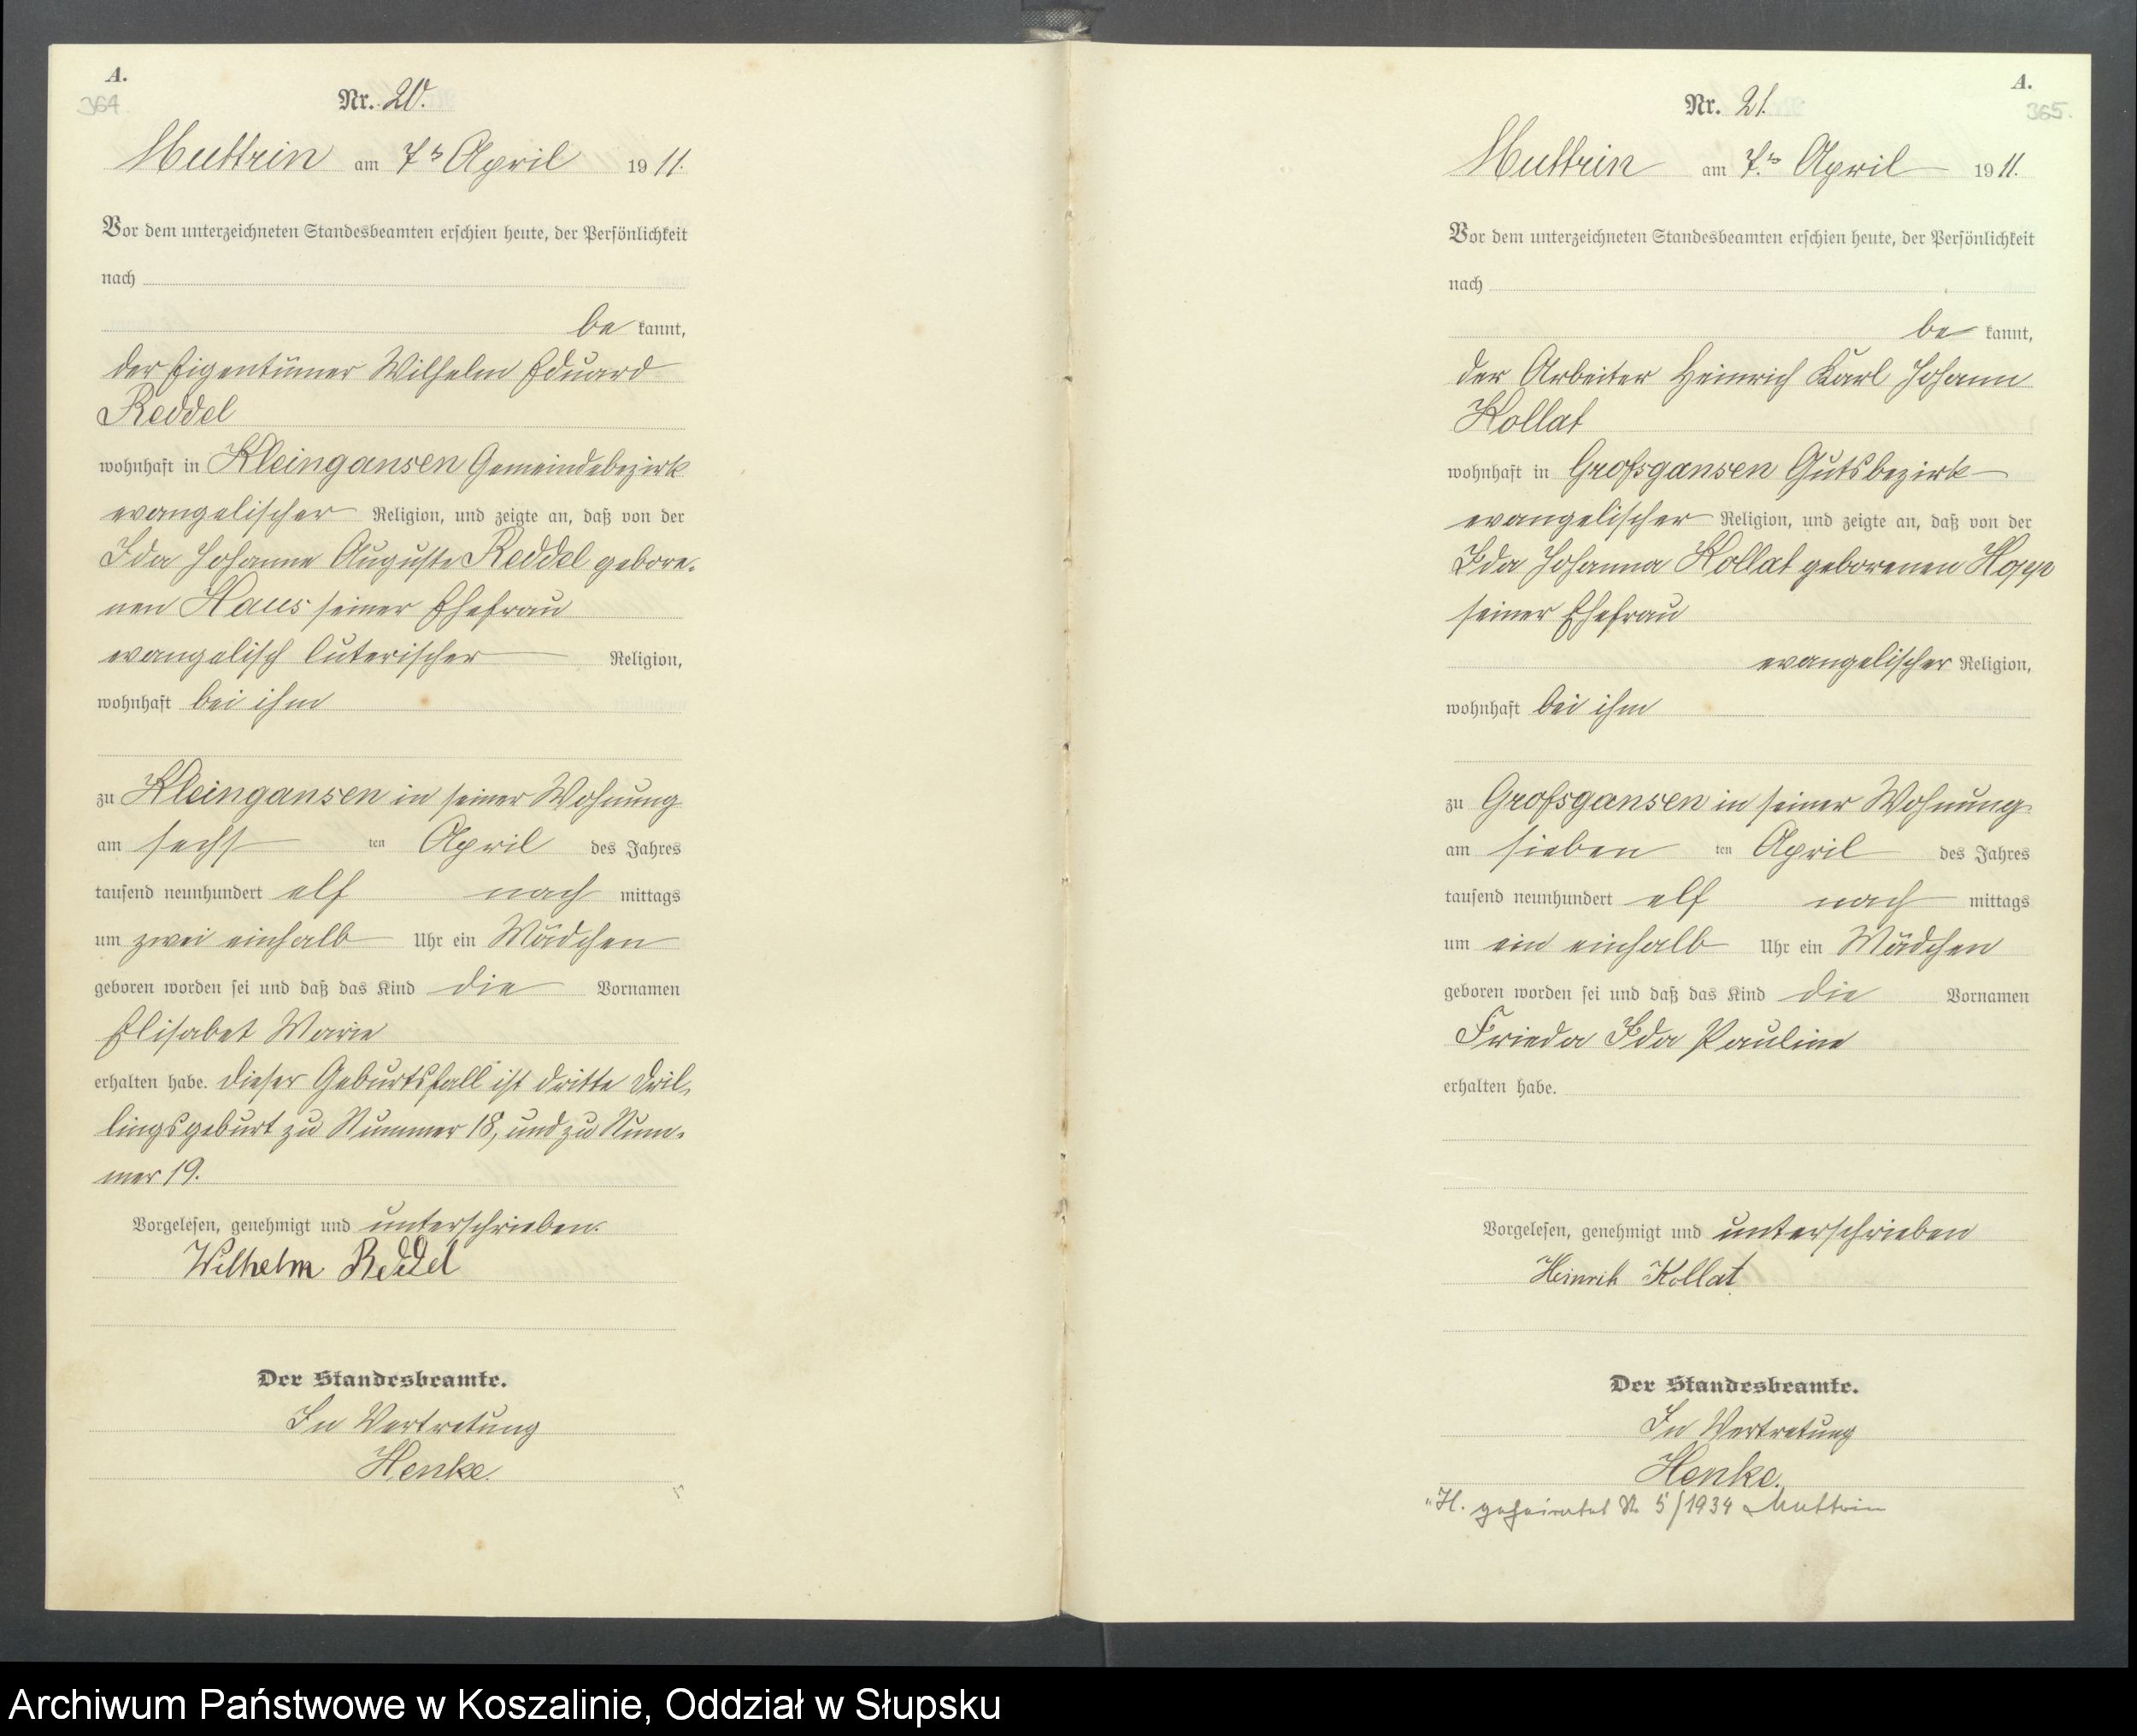 A.
364.
Nr. 20.
Muttrin am 7ᵗᵉⁿ April 1911.
Vor dem unterzeichneten Standesbeamten erschien heute, der Persönlichkeit
nach
be kannt,
der Eigentümer Wilhelm Eduard
Reddel
wohnhaft in Kleingansen Gemeindebezirk
evangelischer Religion, und zeigte an, daß von der
Ida Johanne Auguste Reddel gebore-
nen Haus seiner Ehefrau
evangelisch luterischer Religion,
wohnhaft bei ihm
zu Kleingansen in seiner Wohnung
am sechsten April des Jahres
tausend neunhundert elf nach mittags
um zwei einhalb Uhr ein Mädchen
geboren worden sei und daß das Kind die Vornamen
Elisabet Marie
erhalten habe. Dieser Geburtsfall ist dritte Dril-
lingsgeburt zu Nummer 18, und zu Num-
mer 19.
Vorgelesen, genehmigt und unterschrieben.
Wilhelm Reddel
Der Standesbeamte.
In Vertretung
Henke.
A.
365.
Nr. 21.
Muttrin am 7.ᵗᵉⁿ April 1911.
Vor dem unterzeichneten Standesbeamten erschien heute, der Persönlichkeit
nach
be kannt,
der Arbeiter Heinrich Karl Johann
Kollat
wohnhaft in Großgansen Gutsbezirk
evangelischer Religion, und zeigte an, daß von der
Ida Johanna Kollat geborenen Hopp
seiner Ehefrau
evangelischer Religion,
wohnhaft bei ihm
zu Großgansen in seiner Wohnung
am siebenten April des Jahres
tausend neunhundert elf nach mittags
um ein einhalb Uhr ein Mädchen
geboren worden sei und daß das Kind die Vornamen
Frieda Ida Pauline
erhalten habe.
Vorgelesen, genehmigt und unterschrieben
Heinrih Kollat
Der Standesbeamte.
In Vertretung
Henke.
"H. geheiratet Nr. 5/1934 Muttrin
Archiwum Państwowe w Koszalinie, Oddział w Słupsku